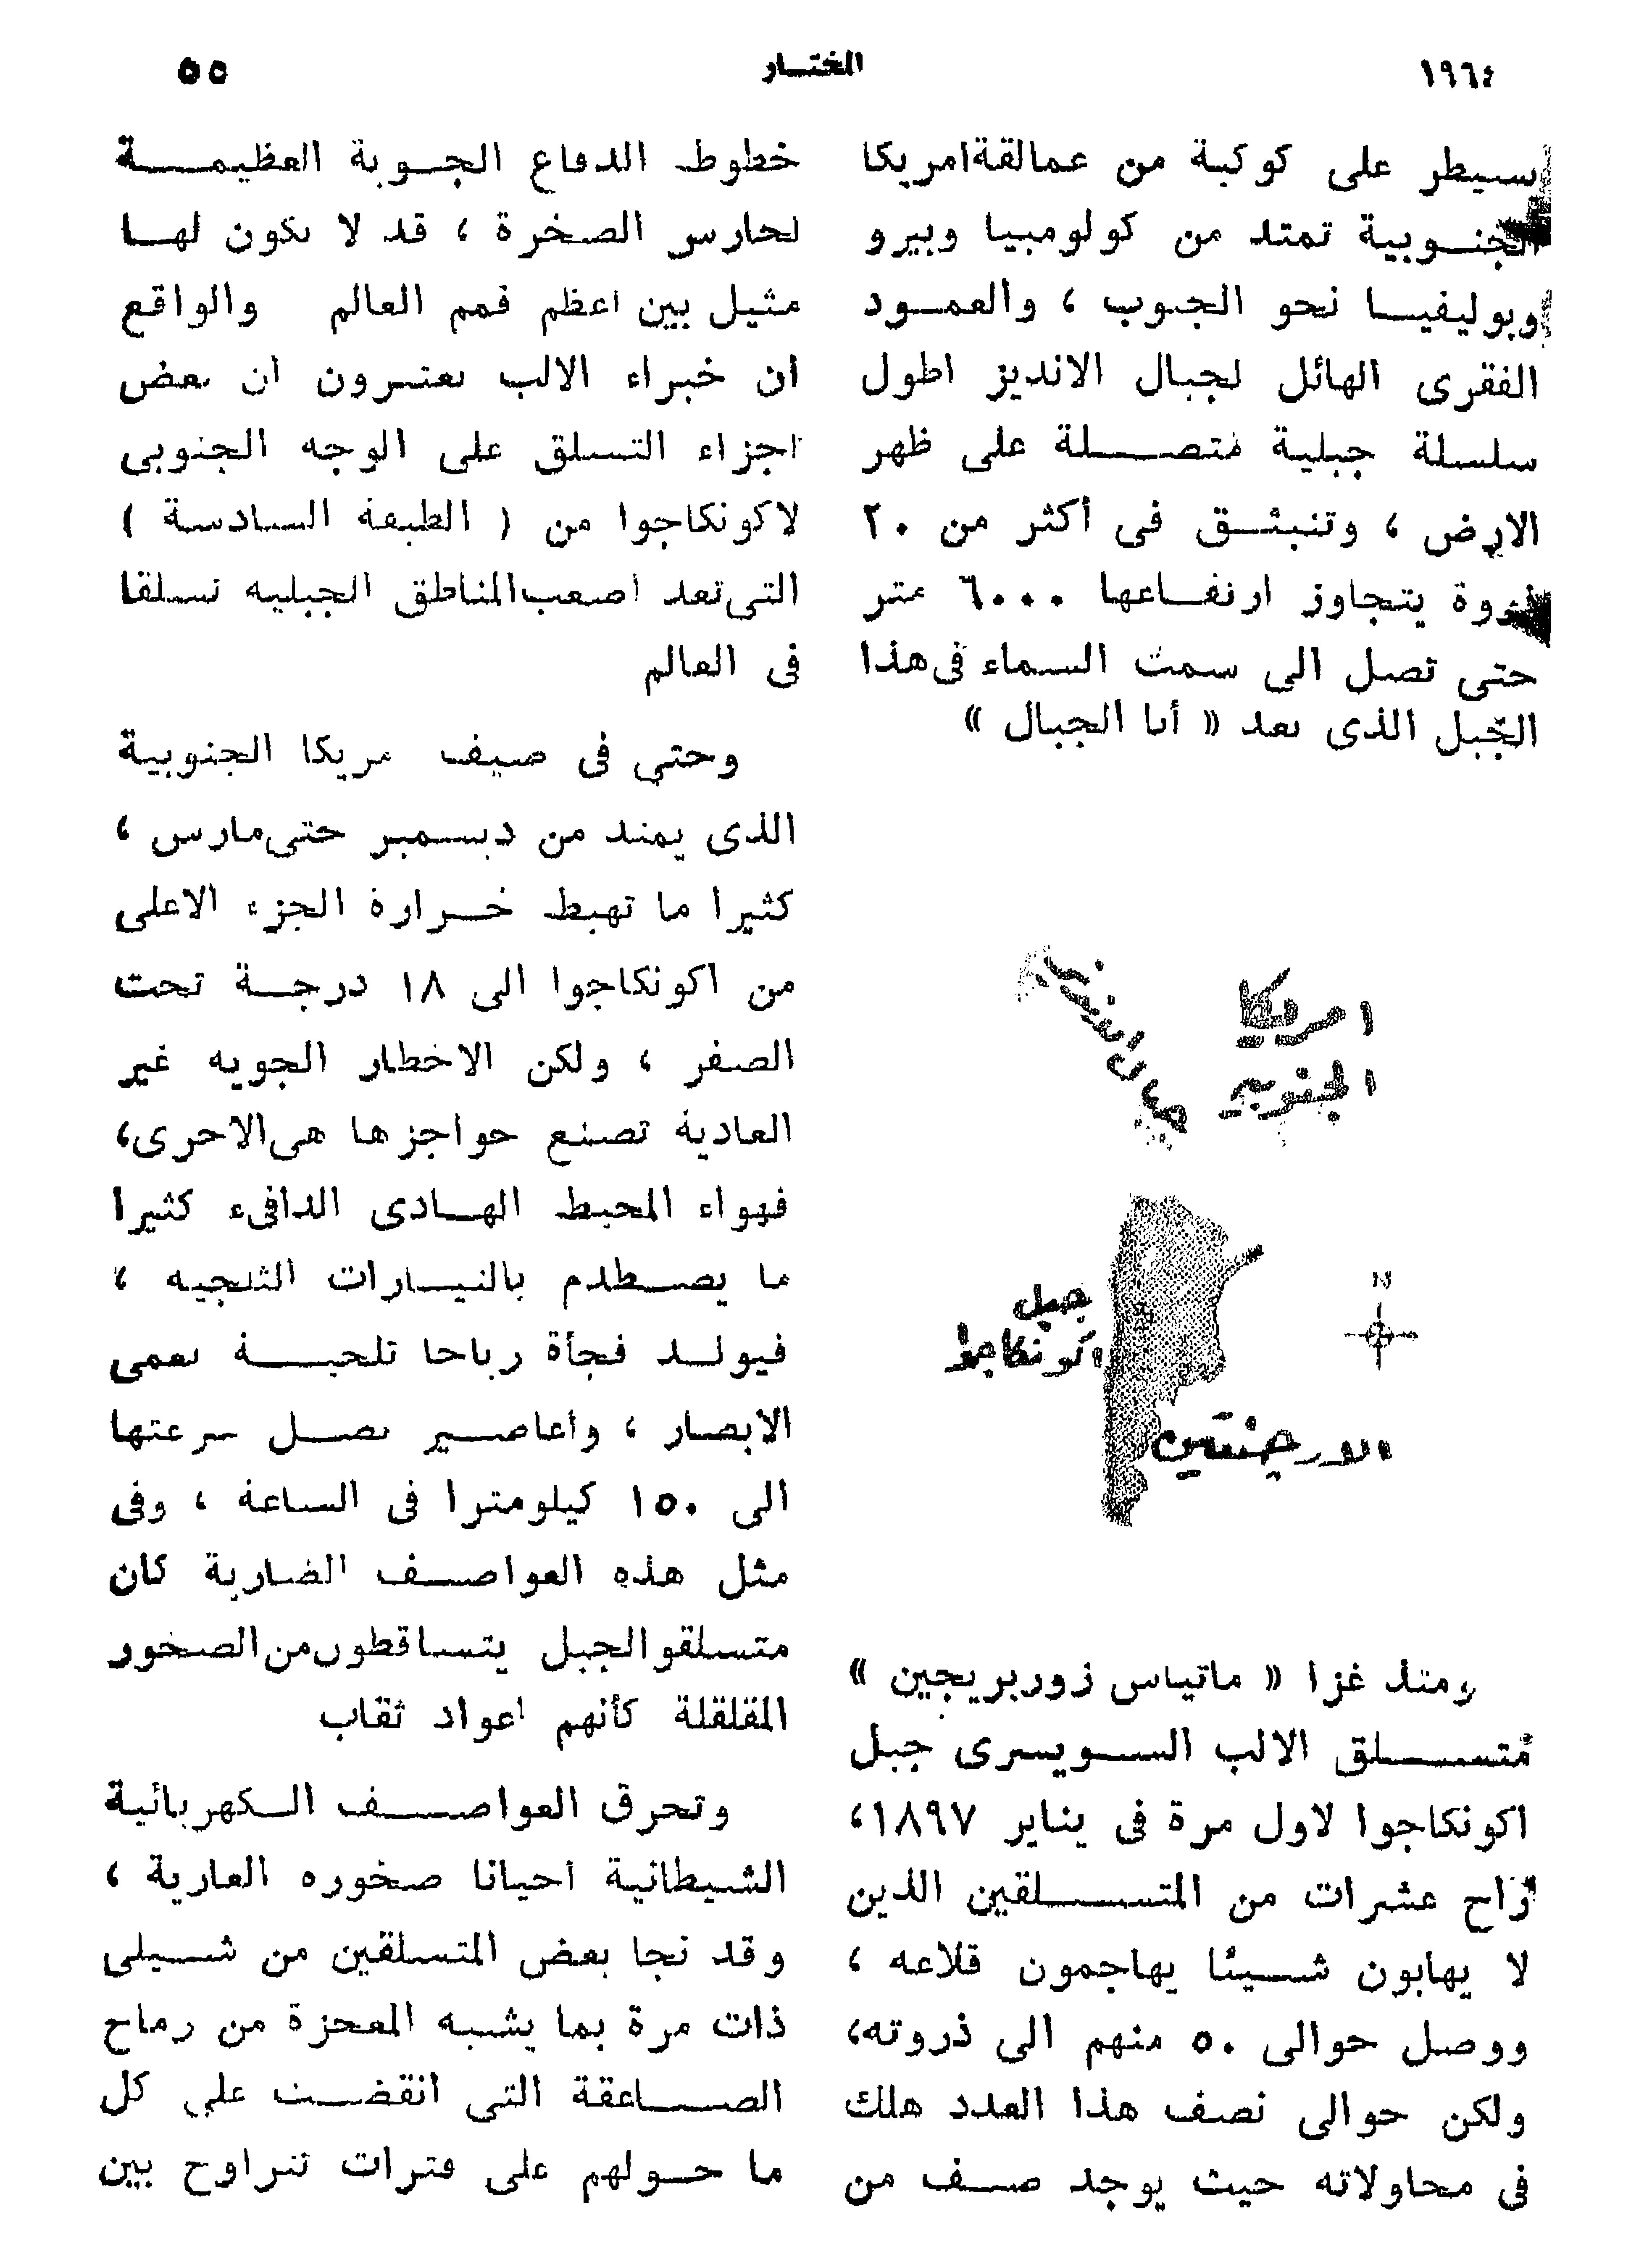 ١٩٦٤
المختـار
٥٥
سـيطر على كوكبة من عمالقة امريكا
الجنـوبية تمتد من كولومبيا وبيرو
وبوليفيـا نحو الجنوب ، والعمـود
الفقرى الهائل لجبال الانديز اطول
سلسلة جبلية متصـلة على ظهر
الارض ، وتنبثـق فى أكثر من ٢٠
ذروة يتجاوز ارتفـاعها ٦٠٠٠ متر
حتى تصل الى سمت السماء فى هذا
الجبل الذى يعد « أبا الجبال »
امريكا
الجنوبية
جبال الانديز
جبل
اكونكاجوا
N
الارجنتين
ومنذ غزا « ماتياس زوربريجين »
متسـلق الالب السـويسرى جبل
اكونكاجوا لاول مرة فى يناير ١٨٩٧،
راح عشرات من المتسـلقين الذين
لا يهابون شـيئا يهاجمون قلاعه ،
ووصل حوالى ٥٠ منهم الى ذروته،
ولكن حوالى نصف هذا العدد هلك
فى محاولاته حيث يوجد صـف من
خطوط الدفاع الجـوية العظيمـة
لحارس الصخرة ، قد لا يكون لهـا
مثيل بين اعظم قمم العالم والواقع
ان خبراء الالب يعتبـرون ان بعض
اجزاء التسلق على الوجه الجنوبى
لاكونكاجوا من ( الطبقة السادسة )
التى تعد اصعب المناطق الجبلية تسلقا
فى العالم
وحتى فى صيف مريكا الجنوبية
الذى يمتد من ديسـمبر حتى مارس ،
كثيرا ما تهبط حـرارة الجزء الاعلى
من اكونكاجوا الى ١٨ درجـة تحت
الصفر ، ولكن الاخطار الجوية غير
العادية تصنع حواجزها هى الاخرى،
فهواء المحيط الهـادى الدافىء كثيرا
ما يصـطدم بالتيـارات الثلجية ،
فيولـد فجأة رياحا ثلجيـة تعمى
الابصار ، واعاصـير تصـل سرعتها
الى ١٥٠ كيلومترا فى الساعة ، وفى
مثل هذه العواصـف الضارية كان
متسلقو الجبل يتساقطون من الصخور
المقلقلة كأنهم اعواد ثقاب
وتحرق العواصـف الـكهربائية
الشيطانية احيانا صخوره العارية ،
وقد نجا بعض المتسلقين من شـيلى
ذات مرة بما يشبه المعجزة من رماح
الصـاعقة التى انقضـت على كل
ما حـولهم على فترات تتراوح بين